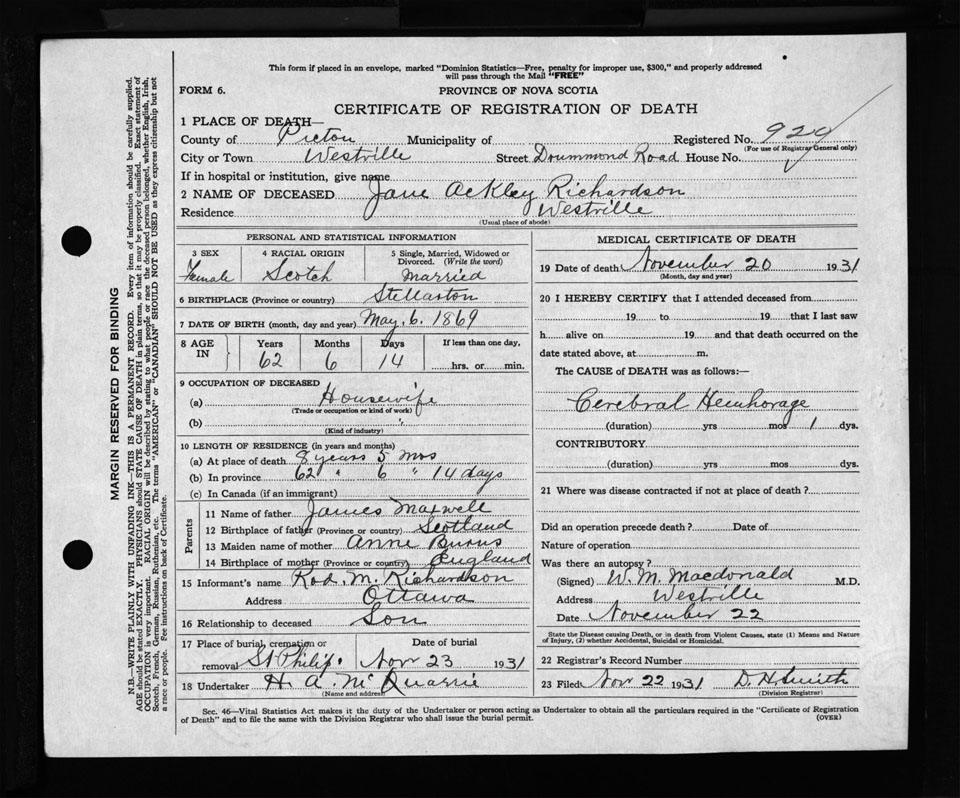 This form if placed in an envelope, marked "Dominion Statistics—Free, penalty for improper use, $300," and properly addressed
will pass through the Mail "FREE"
FORM 6.
PROVINCE OF NOVA SCOTIA
CERTIFICATE OF REGISTRATION OF DEATH
1 PLACE OF DEATH—
County of Pictou Municipality of Registered No. 929
(For use of Registrar General only)
City or Town Westville Street Drummond Road House No.
If in hospital or institution, give name
2 NAME OF DECEASED Jane Ackley Richardson
Residence Westville
(Usual place of abode)
PERSONAL AND STATISTICAL INFORMATION
3 SEX
Female
4 RACIAL ORIGIN
Scotch
5 Single, Married, Widowed or
Divorced. (Write the word)
Married
6 BIRTHPLACE (Province or country) Stellarton
7 DATE OF BIRTH (month, day and year) May, 6. 1869
8 AGE
IN
Years Months Days If less than one day,
62 6 14 hrs. or min.
9 OCCUPATION OF DECEASED
(a) Housewife
(Trade or occupation or kind of work)
(b) "
(Kind of industry)
10 LENGTH OF RESIDENCE (in years and months)
(a) At place of death 8 years 5 mos
(b) In province 62 " 6 " 14 days
(c) In Canada (if an immigrant)
Parents
11 Name of father James Maxwell
12 Birthplace of father (Province or country) Scotland
13 Maiden name of mother Anne Burns
14 Birthplace of mother (Province or country) England
15 Informant's name Rod. M. Richardson
Address Ottawa
16 Relationship to deceased Son
17 Place of burial, cremation or
removal St Philip.
Date of burial
Nov 23 1931
18 Undertaker H. A. Mc Quarrie
(Name and address)
MEDICAL CERTIFICATE OF DEATH
19 Date of death November 20 1931
(Month, day and year)
20 I HEREBY CERTIFY that I attended deceased from
19 to 19 that I last saw
h alive on 19 and that death occurred on the
date stated above, at m.
The CAUSE of DEATH was as follows:—
Cerebral Hemhorage
(duration) yrs mos 1 dys.
CONTRIBUTORY
(duration) yrs mos dys.
21 Where was disease contracted if not at place of death?
Did an operation precede death? Date of
Nature of operation
Was there an autopsy?
(Signed) W. M. Macdonald M.D.
Address Westville
Date November 22
State the Disease causing Death, or in death from Violent Causes, state (1) Means and Nature
of Injury, (2) whether Accidental, Suicidal or Homicidal.
22 Registrar's Record Number
23 Filed Nov 22 1931 D. H. Smith
(Division Registrar)
Sec. 46—Vital Statistics Act makes it the duty of the Undertaker or person acting as Undertaker to obtain all the particulars required in the "Certificate of Registration
of Death" and to file the same with the Division Registrar who shall issue the burial permit.
(OVER)
MARGIN RESERVED FOR BINDING
N.B.—WRITE PLAINLY WITH UNFADING INK—THIS IS A PERMANENT RECORD. Every item of information should be carefully supplied.
AGE should be stated EXACTLY. PHYSICIANS should STATE CAUSE OF DEATH in plain terms, so that it may be properly classified. Exact statement of
OCCUPATION is very important. RACIAL ORIGIN will be described by stating to what people or race the deceased person belonged, whether English, Irish,
Scotch, French, German, Russian, Ruthenian, etc. The terms "AMERICAN" or "CANADIAN" SHOULD NOT BE USED as they express citizenship but not
a race or people. See instructions on back of Certificate.